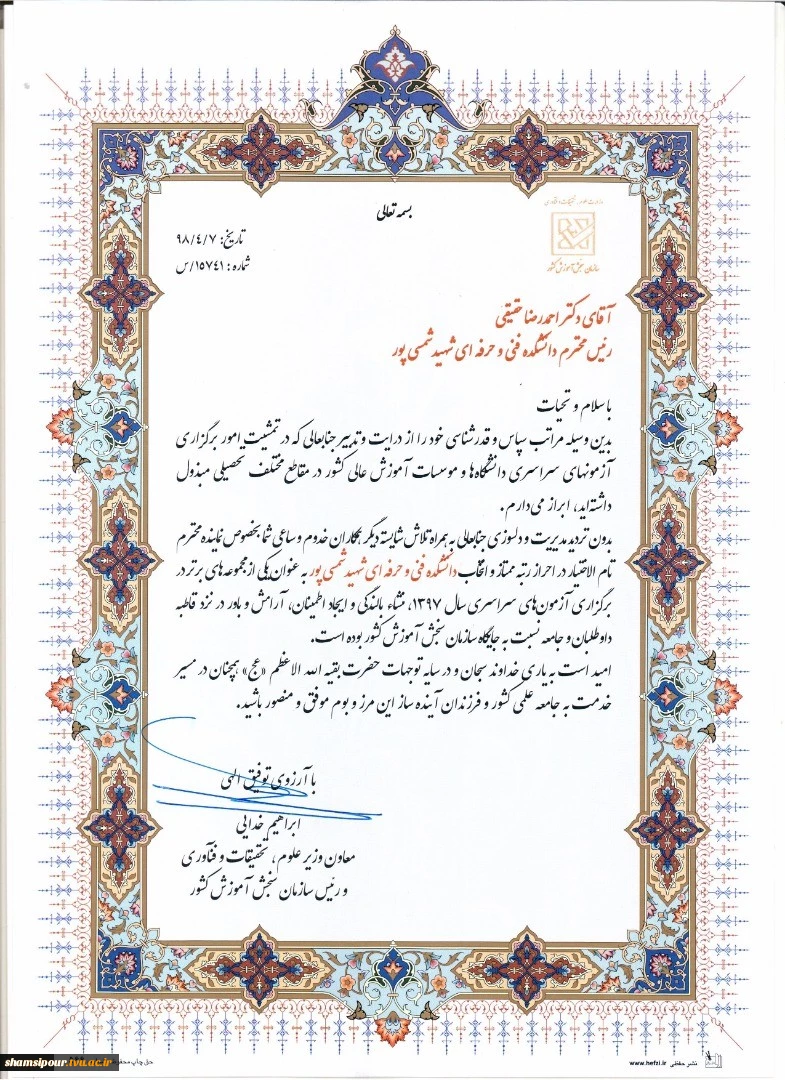 بسمه تعالی
وزارت علوم، تحقیقات و فناوری
سازمان سنجش آموزش کشور
تاریخ: ۹۸/۴/۷
شماره: ۱۵۷۴۱/س
آقای دکتر احمدرضا حقیقی
رئیس محترم دانشکده فنی و حرفه ای شهید شمسی پور
با سلام و تحیات
بدین وسیله مراتب سپاس و قدرشناسی خود را از درایت و تدبیر جنابعالی که در تمشیت امور برگزاری
آزمونهای سراسری دانشگاه‌ها و موسسات آموزش عالی کشور در مقاطع مختلف تحصیلی مبذول
داشته‌اید، ابراز می‌دارم.
بدون تردید مدیریت و دلسوزی جنابعالی به همراه تلاش شایسته دیگر همکاران خدوم و ساعی شما بخصوص نماینده محترم
تام الاختیار در احراز رتبه ممتاز و انتخاب دانشکده فنی و حرفه ای شهید شمسی پور به عنوان یکی از مجموعه های برتر در
برگزاری آزمون‌های سراسری سال ۱۳۹۷، منشاء بالندگی و ایجاد اطمینان، آرامش و باور در نزد قاطبه
داوطلبان و جامعه نسبت به جایگاه سازمان سنجش آموزش کشور بوده است.
امید است به یاری خداوند سبحان و در سایه توجهات حضرت بقیه الله الاعظم «عج» همچنان در مسیر
خدمت به جامعه علمی کشور و فرزندان آینده ساز این مرز و بوم موفق و منصور باشید.
با آرزوی توفیق الهی
ابراهیم خدایی
معاون وزیر علوم، تحقیقات و فناوری
و رئیس سازمان سنجش آموزش کشور
shamsipour.tvu.ac.ir
حق چاپ محفوظ
www.hefzi.ir نشر حفظی